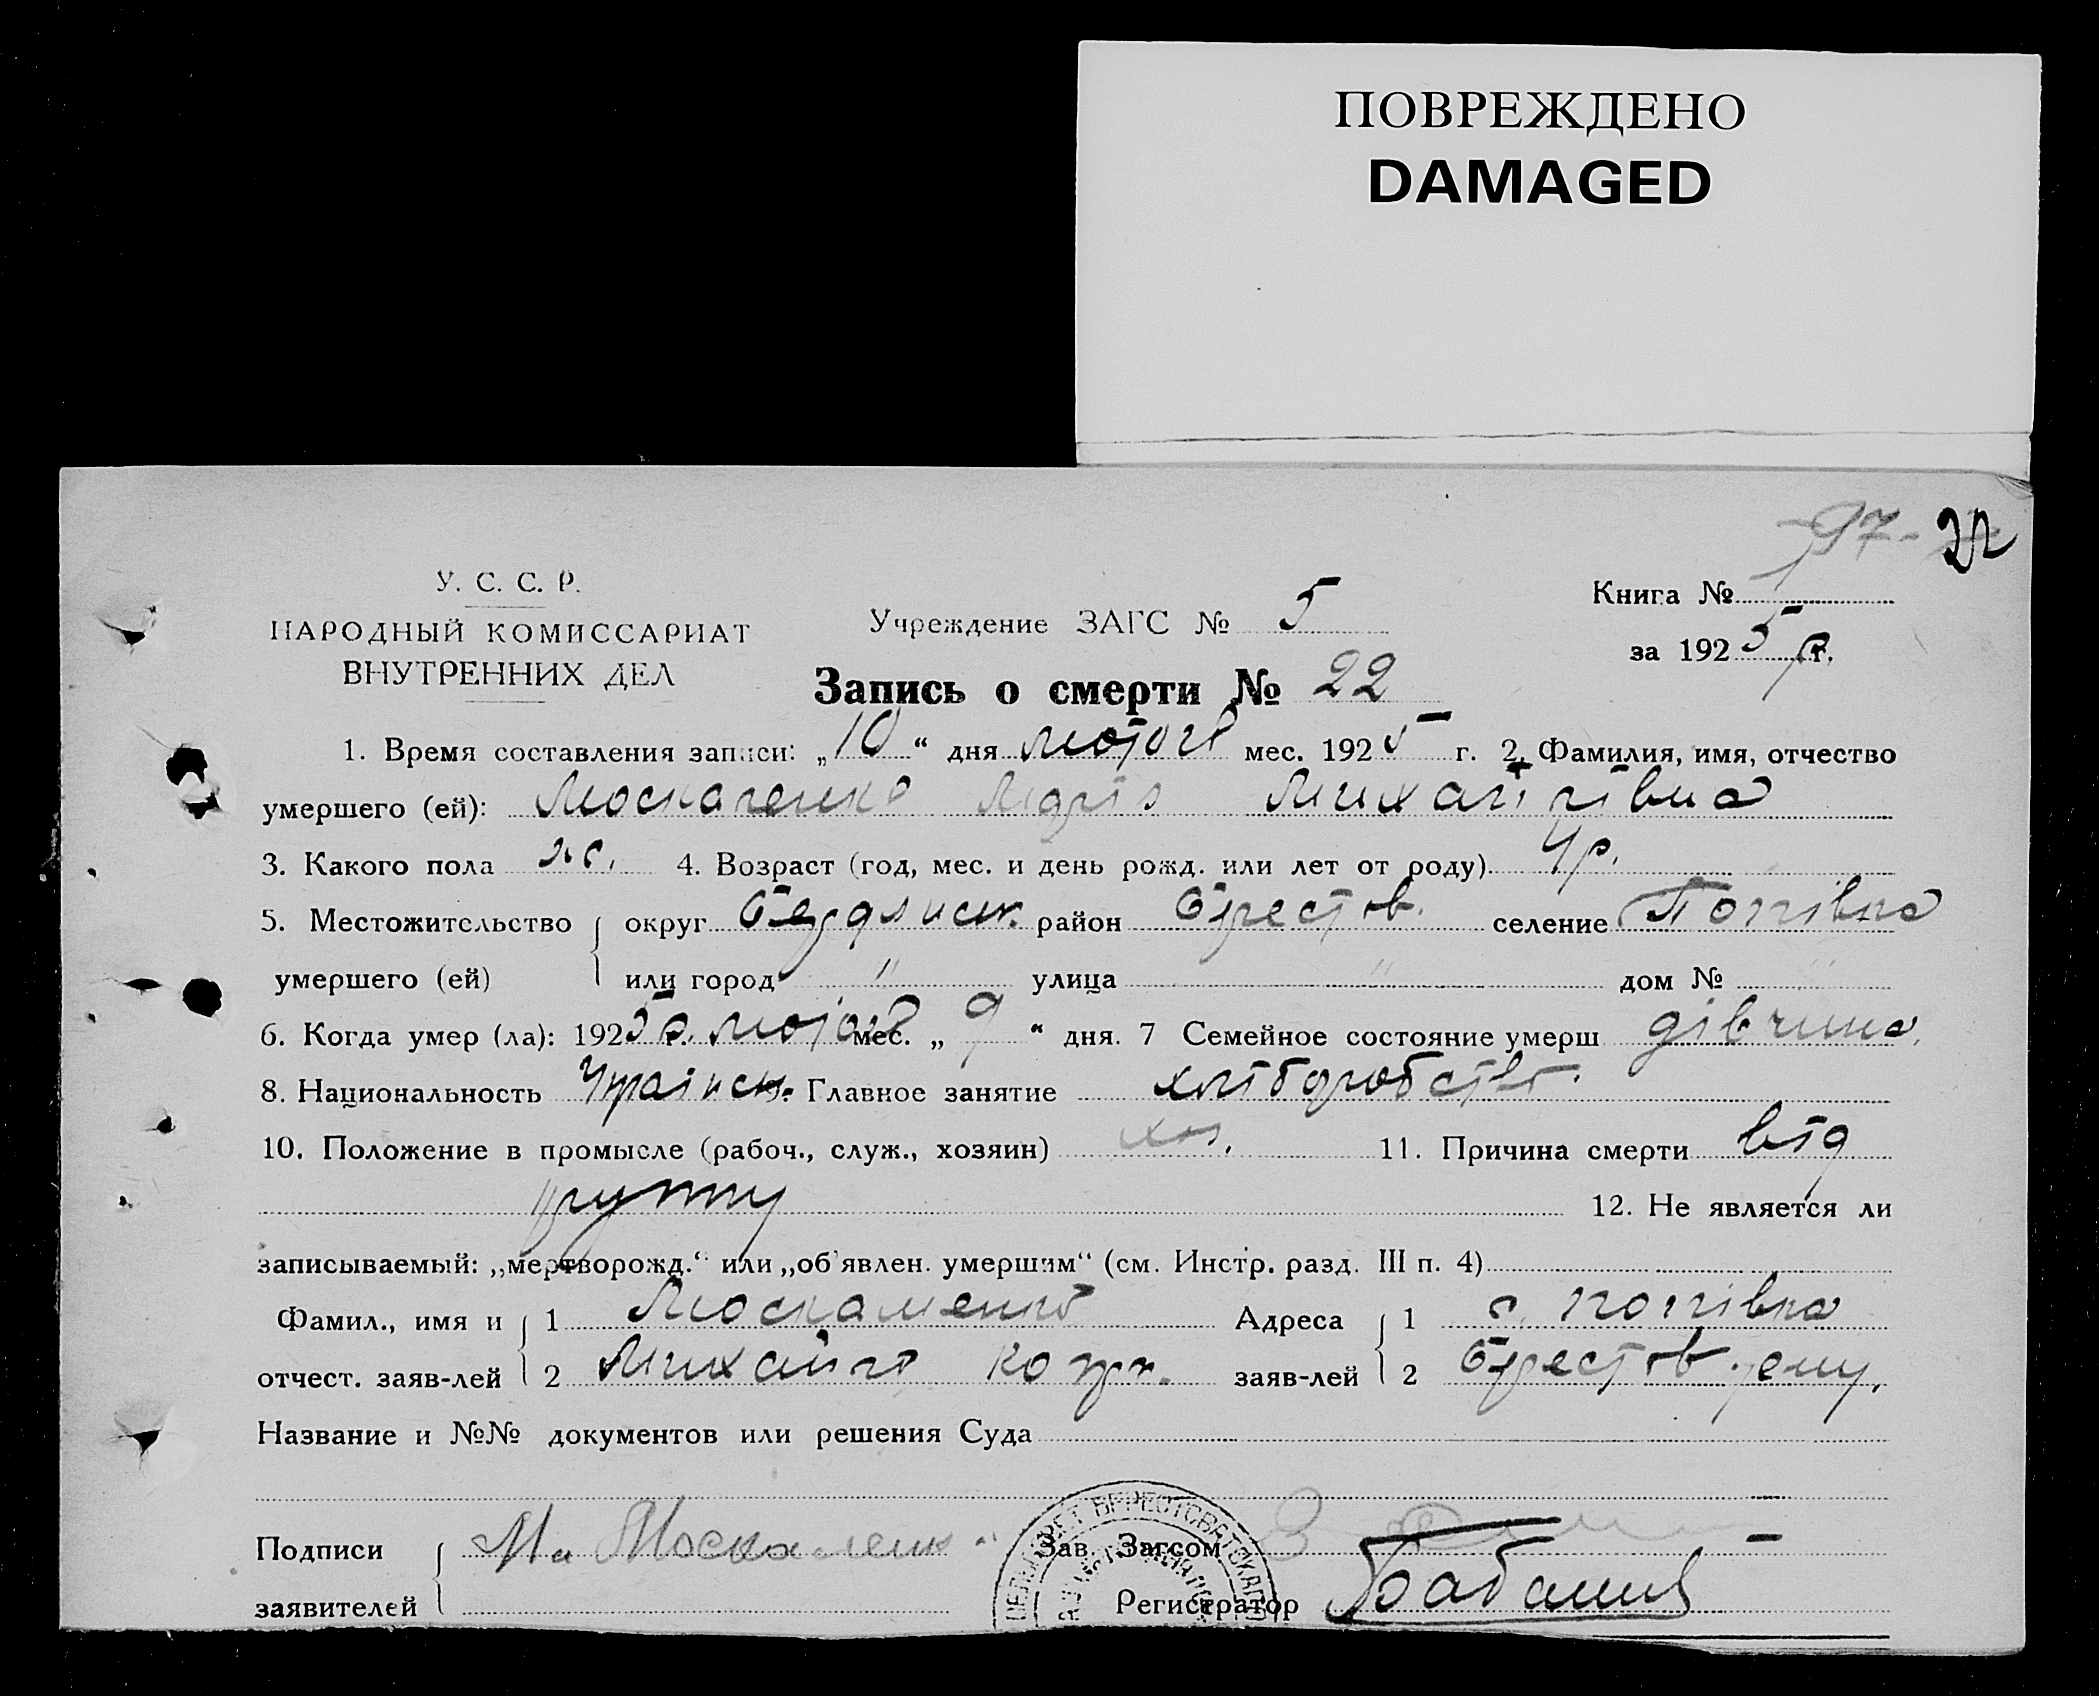 ПОВРЕЖДЕНО
DAMAGED
97- 22
У. С. С. Р.
НАРОДНЫЙ КОМИССАРИАТ
ВНУТРЕННИХ ДЕЛ
Учреждение ЗАГС № 5
Книга № 1
за 1925 г.
Запись о смерти № 22
1. Время составления записи: „10“ дня лютого мес. 1925 г. 2. Фамилия, имя, отчество
умершего (ей): Москаленко Марія Михайлівна
3. Какого пола ж. 4. Возраст (год, мес. и день рожд. или лет от роду) 4 р.
5. Местожительство округ Бердянськ. район Берестов. селение
умершего (ей) или город " улица " дом № "
6. Когда умер (ла): 1925 р. лютого мес. „9“ дня. 7 Семейное состояние умерш дівчина
8. Национальность Українск. Главное занятие хліборобство.
10. Положение в промысле (рабоч., служ., хозяин) хоз. 11. Причина смерти від
крупу 12. Не является ли
записываемый: „мертворожд.“ или „об'явлен. умершим“ (см. Инстр. разд. III п. 4)
Фамил., имя и 1 Москаленко Адреса 1 с.
отчест. заяв-лей 2 Михайло заяв-лей 2 Берестов
Название и №№ документов или решения Суда
Подписи Москаленк Зав. Загсом
заявителей Регистратор